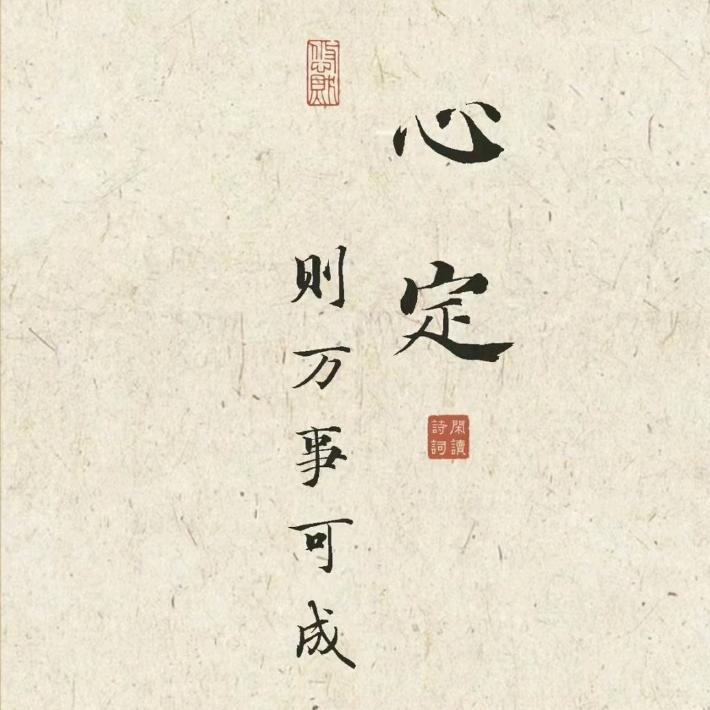 心定
则万事可成
閑讀
詩詞